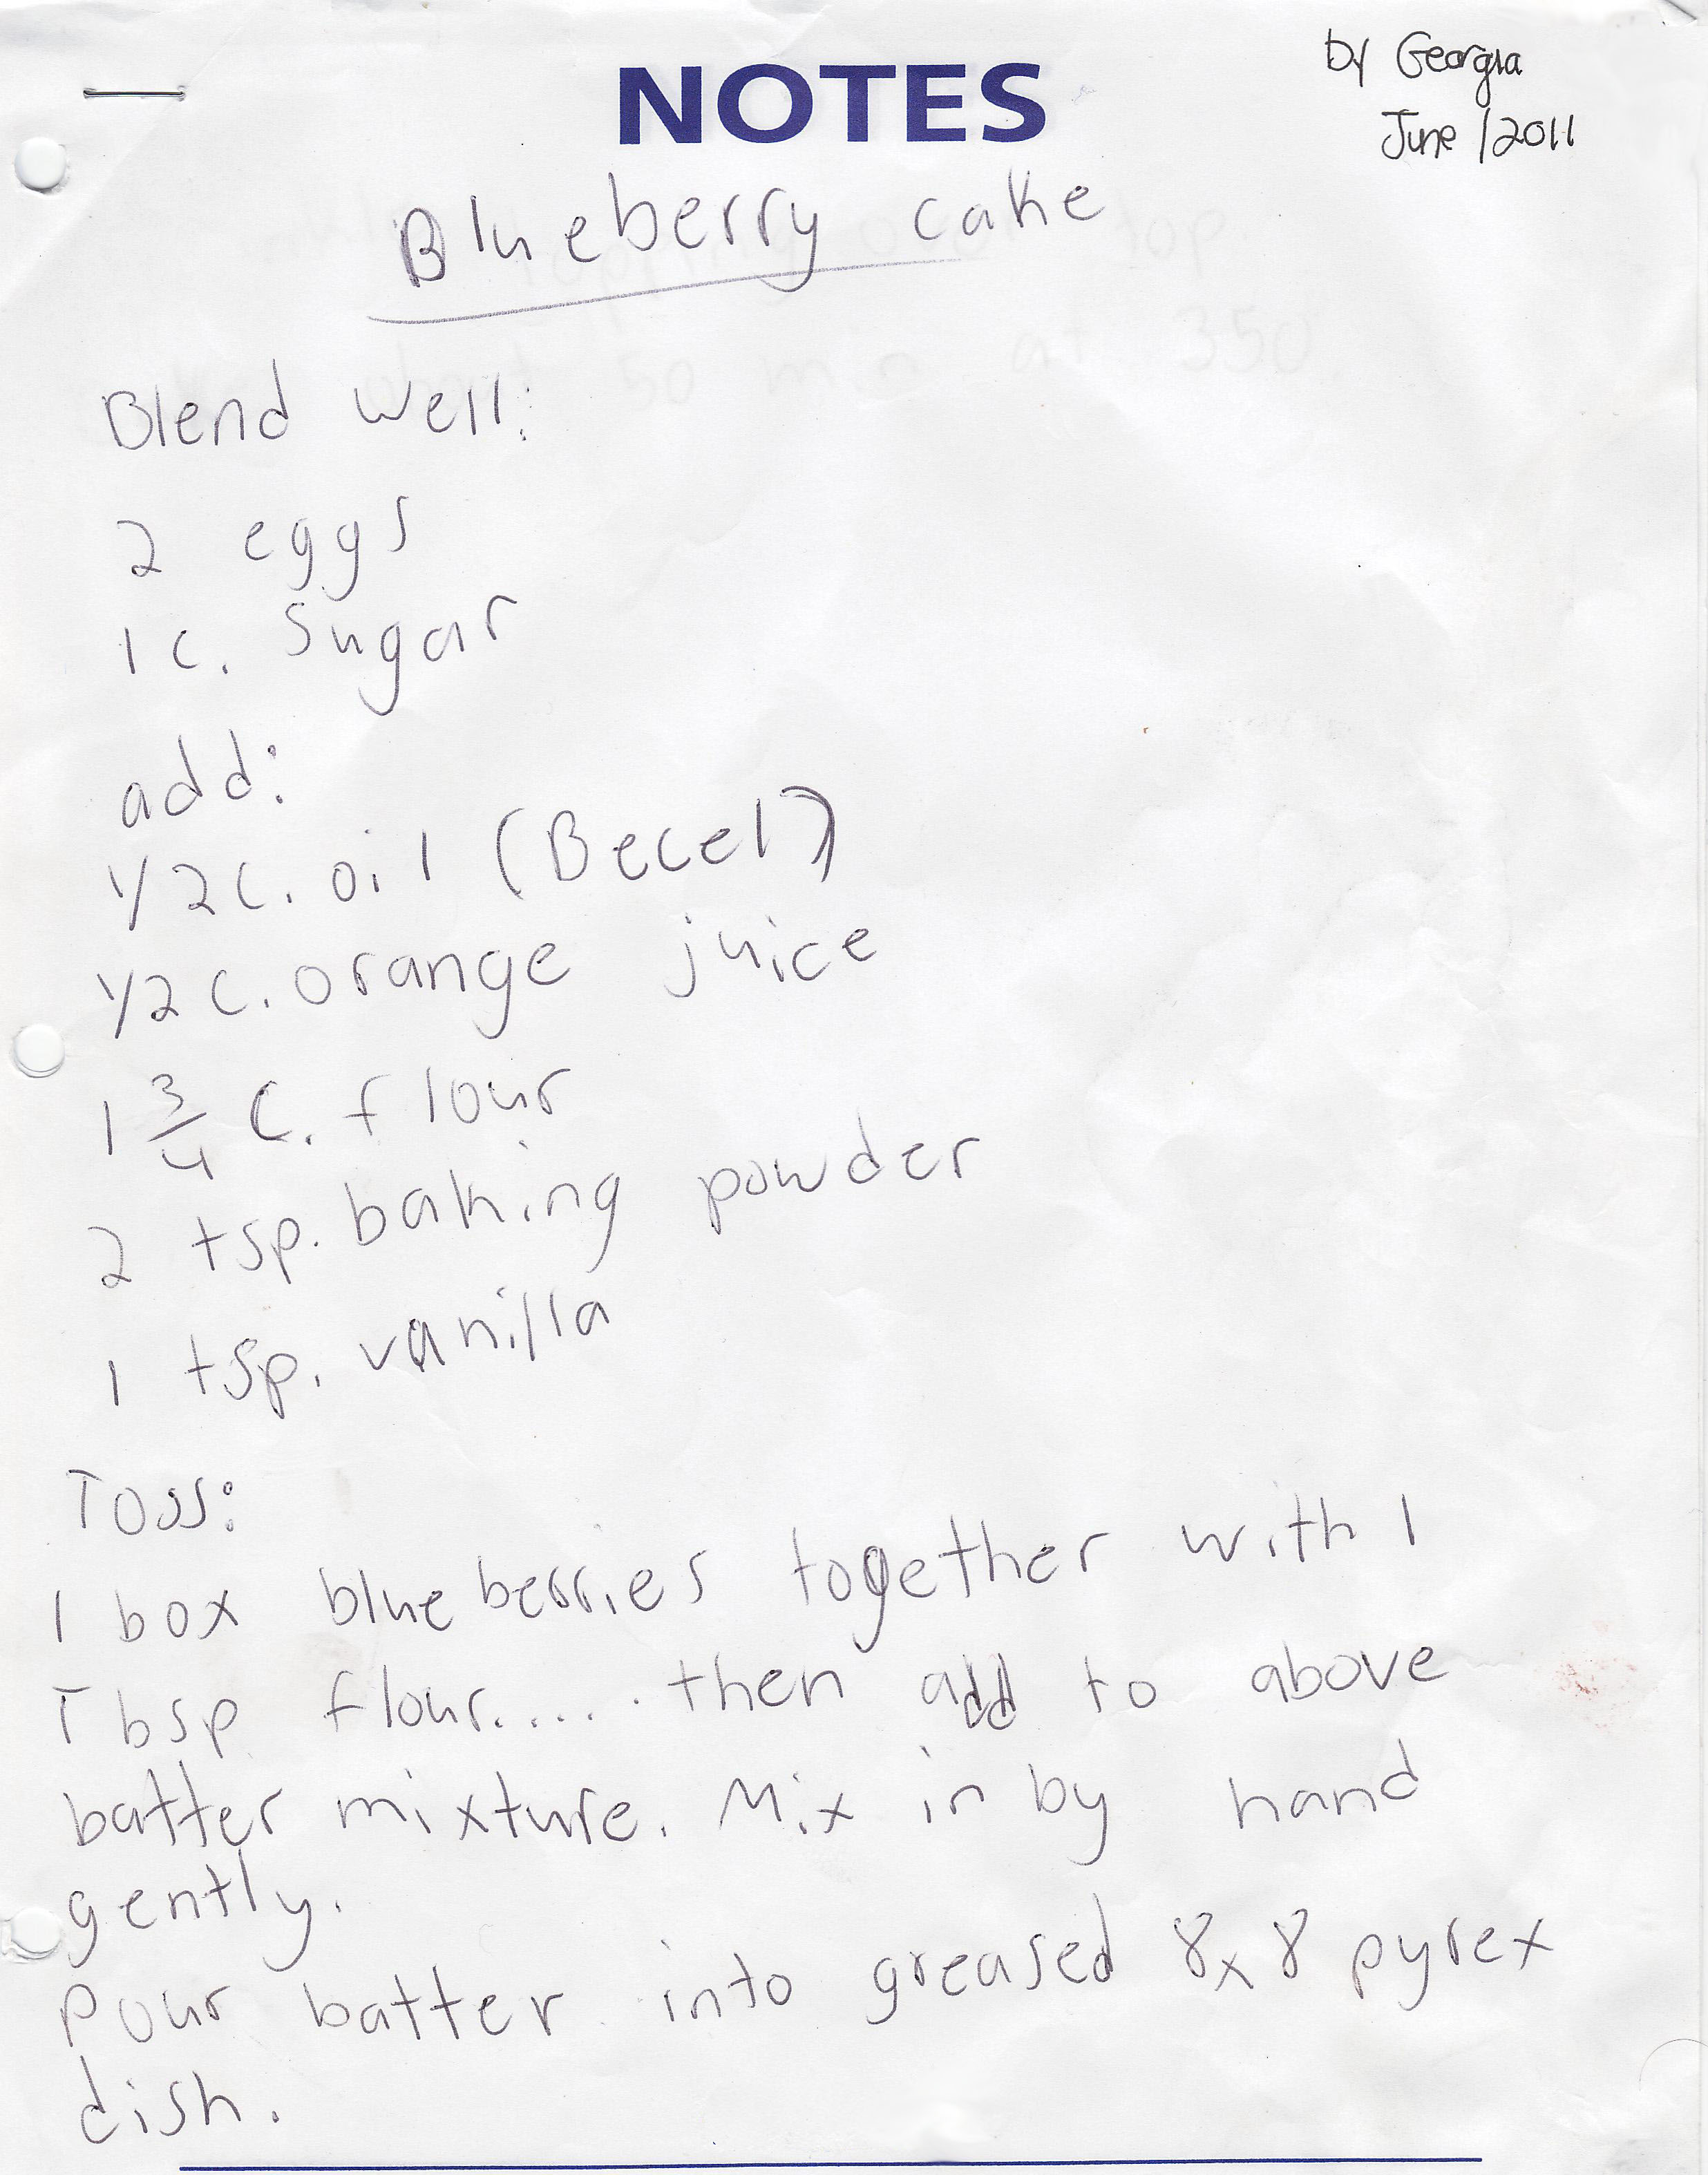 by Georgia
NOTES
June /2011
Blueberry cake
Blend well:
2 eggs
1 c. Sugar
add:
1/2 c. oil (Becel)
1/2 c. orange juice
1 3/4 c. flour
2 tsp. baking powder
1 tsp. vanilla
Toss:
1 box blueberries together with 1
Tbsp flour..... then add to above
batter mixture. Mix in by hand
gently.
Pour batter into greased 8x8 pyrex
dish.